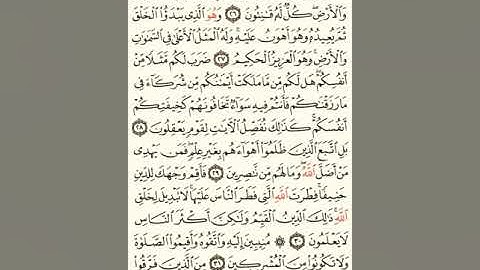 وَٱلۡأَرۡضِۖ كُلّٞ لَّهُۥ قَٰنِتُونَ ٢٦ وَهُوَ ٱلَّذِي يَبۡدَؤُاْ ٱلۡخَلۡقَ
ثُمَّ يُعِيدُهُۥ وَهُوَ أَهۡوَنُ عَلَيۡهِۚ وَلَهُ ٱلۡمَثَلُ ٱلۡأَعۡلَىٰ فِي ٱلسَّمَٰوَٰتِ
وَٱلۡأَرۡضِۚ وَهُوَ ٱلۡعَزِيزُ ٱلۡحَكِيمُ ٢٧ ضَرَبَ لَكُم مَّثَلٗا مِّنۡ
أَنفُسِكُمۡۖ هَل لَّكُم مِّن مَّا مَلَكَتۡ أَيۡمَٰنُكُم مِّن شُرَكَآءَ فِي
مَا رَزَقۡنَٰكُمۡ فَأَنتُمۡ فِيهِ سَوَآءٞ تَخَافُونَهُمۡ كَخِيفَتِكُمۡ
أَنفُسَكُمۡۚ كَذَٰلِكَ نُفَصِّلُ ٱلۡأٓيَٰتِ لِقَوۡمٖ يَعۡقِلُونَ ٢٨
بَلِ ٱتَّبَعَ ٱلَّذِينَ ظَلَمُوٓاْ أَهۡوَآءَهُم بِغَيۡرِ عِلۡمٖۖ فَمَن يَهۡدِي
مَنۡ أَضَلَّ ٱللَّهُۖ وَمَا لَهُم مِّن نَّٰصِرِينَ ٢٩ فَأَقِمۡ وَجۡهَكَ لِلدِّينِ
حَنِيفٗاۚ فِطۡرَتَ ٱللَّهِ ٱلَّتِي فَطَرَ ٱلنَّاسَ عَلَيۡهَاۚ لَا تَبۡدِيلَ لِخَلۡقِ
ٱللَّهِۚ ذَٰلِكَ ٱلدِّينُ ٱلۡقَيِّمُ وَلَٰكِنَّ أَكۡثَرَ ٱلنَّاسِ
لَا يَعۡلَمُونَ ٣٠ ۞ مُنِيبِينَ إِلَيۡهِ وَٱتَّقُوهُ وَأَقِيمُواْ ٱلصَّلَوٰةَ
وَلَا تَكُونُواْ مِنَ ٱلۡمُشۡرِكِينَ ٣١ مِنَ ٱلَّذِينَ فَرَّقُواْ